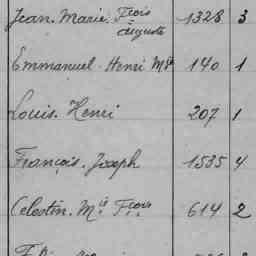 Jean. Marie. Frois Auguste 1328 3
Emmanuel. Henri Mie 140 1
Louis. Henri 207 1
François. Joseph 1535 4
Celestin. Mie Frois 614 2